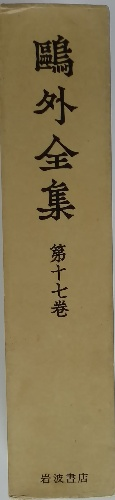 鷗外全集
第十七巻
岩波書店